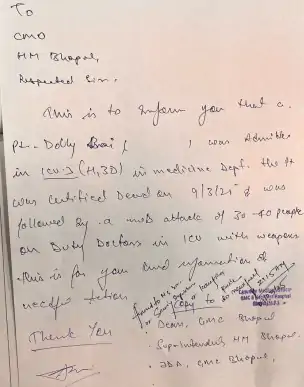 To
CMO
HM Bhopal,
Respected Sir,
This is to inform you that a
pt- Dolly Bai, was Admitted
in ICU-3 (H3D) in medicine Dept. the Pt
was Certified Dead on 9/3/25 & was
followed by a mob attack of 30-40 people
on Duty Doctors in ICU with weapons
This is for you kind information &
Thank You
Copy to
Dean, GMC Bhopal
Superintendent, HM Bhopal
JDA, GMC Bhopal,